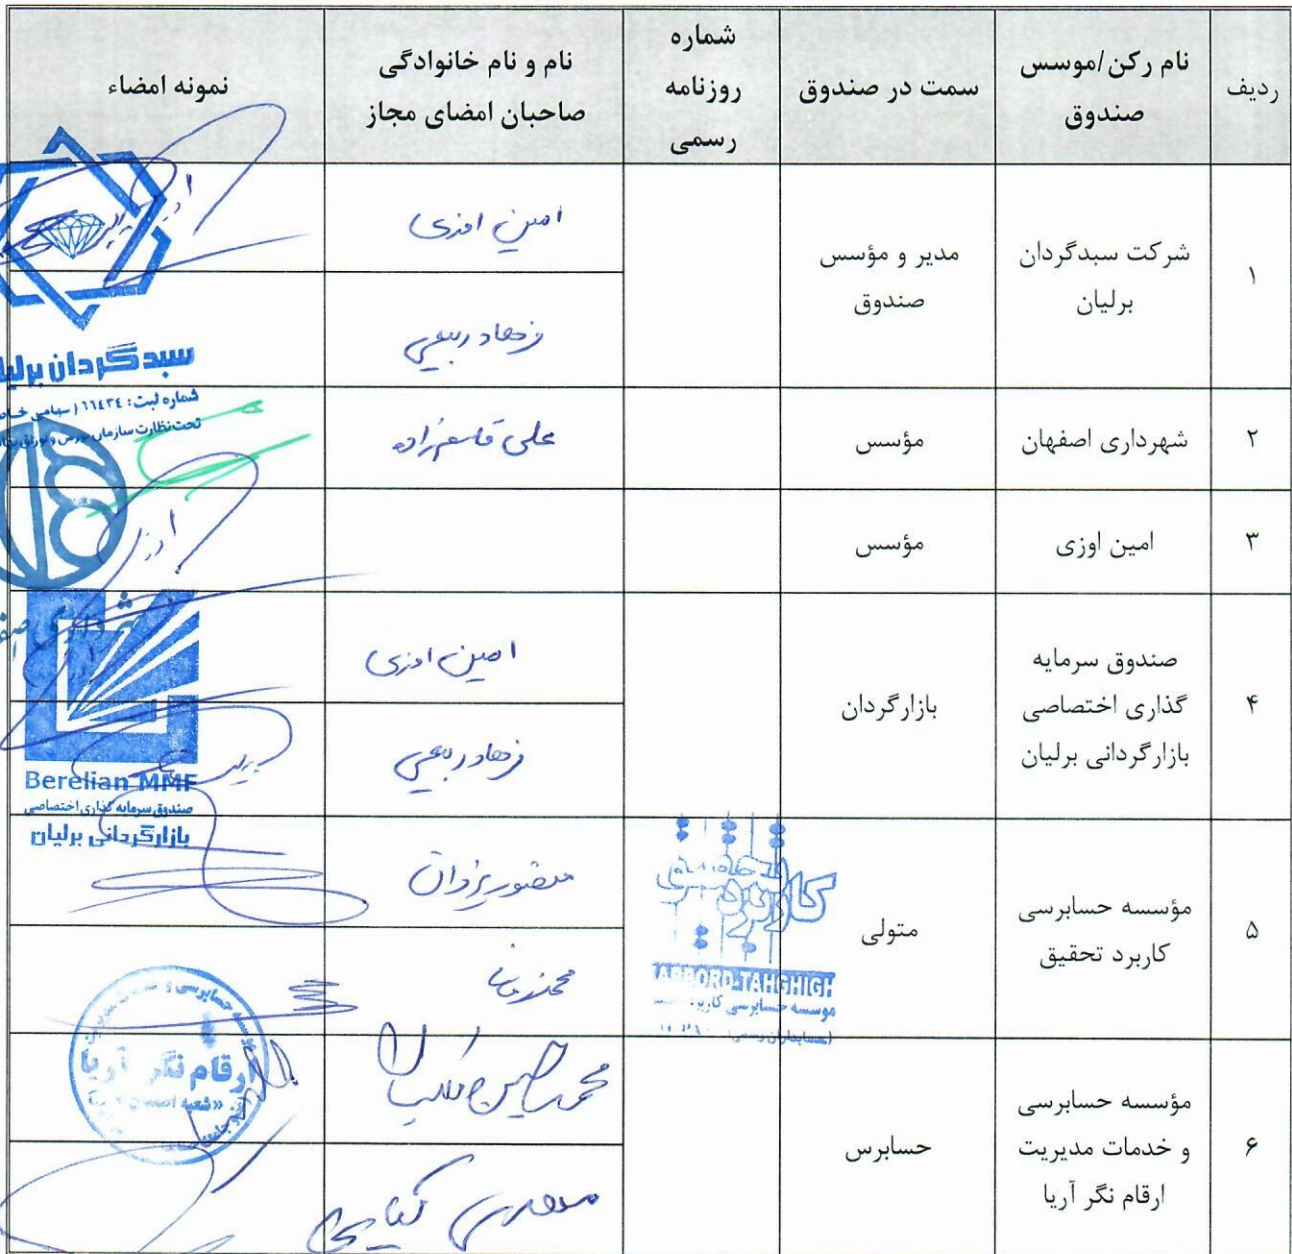 ردیف
نام رکن/موسس
صندوق
سمت در صندوق
شماره
روزنامه
رسمی
نام و نام خانوادگی
صاحبان امضای مجاز
نمونه امضاء
۱
شرکت سبدگردان
برلیان
مدیر و مؤسس
صندوق
امین اوزی
فرهاد ربیعی
سبدگردان برلیا
شماره ثبت: ١١٤٣٤ (سهامی خاص
تحت نظارت سازمان بورس و اوراق بها
۲
شهرداری اصفهان
مؤسس
علی قاسم زاده
۳
امین اوزی
مؤسس
۴
صندوق سرمایه
گذاری اختصاصی
بازارگردانی برلیان
بازارگردان
امین اوزی
فرهاد ربیعی
Berelian MMF
صندوق سرمایه گذاری اختصاصی
بازارگردانی برلیان
۵
مؤسسه حسابرسی
کاربرد تحقیق
متولی
کاربرد تحقیق
ARBORD-TAHGHIGH
موسسه حسابرسی
منصور یزدان
۶
مؤسسه حسابرسی
و خدمات مدیریت
ارقام نگر آریا
حسابرس
محمد حسین
ارقام نگر آریا